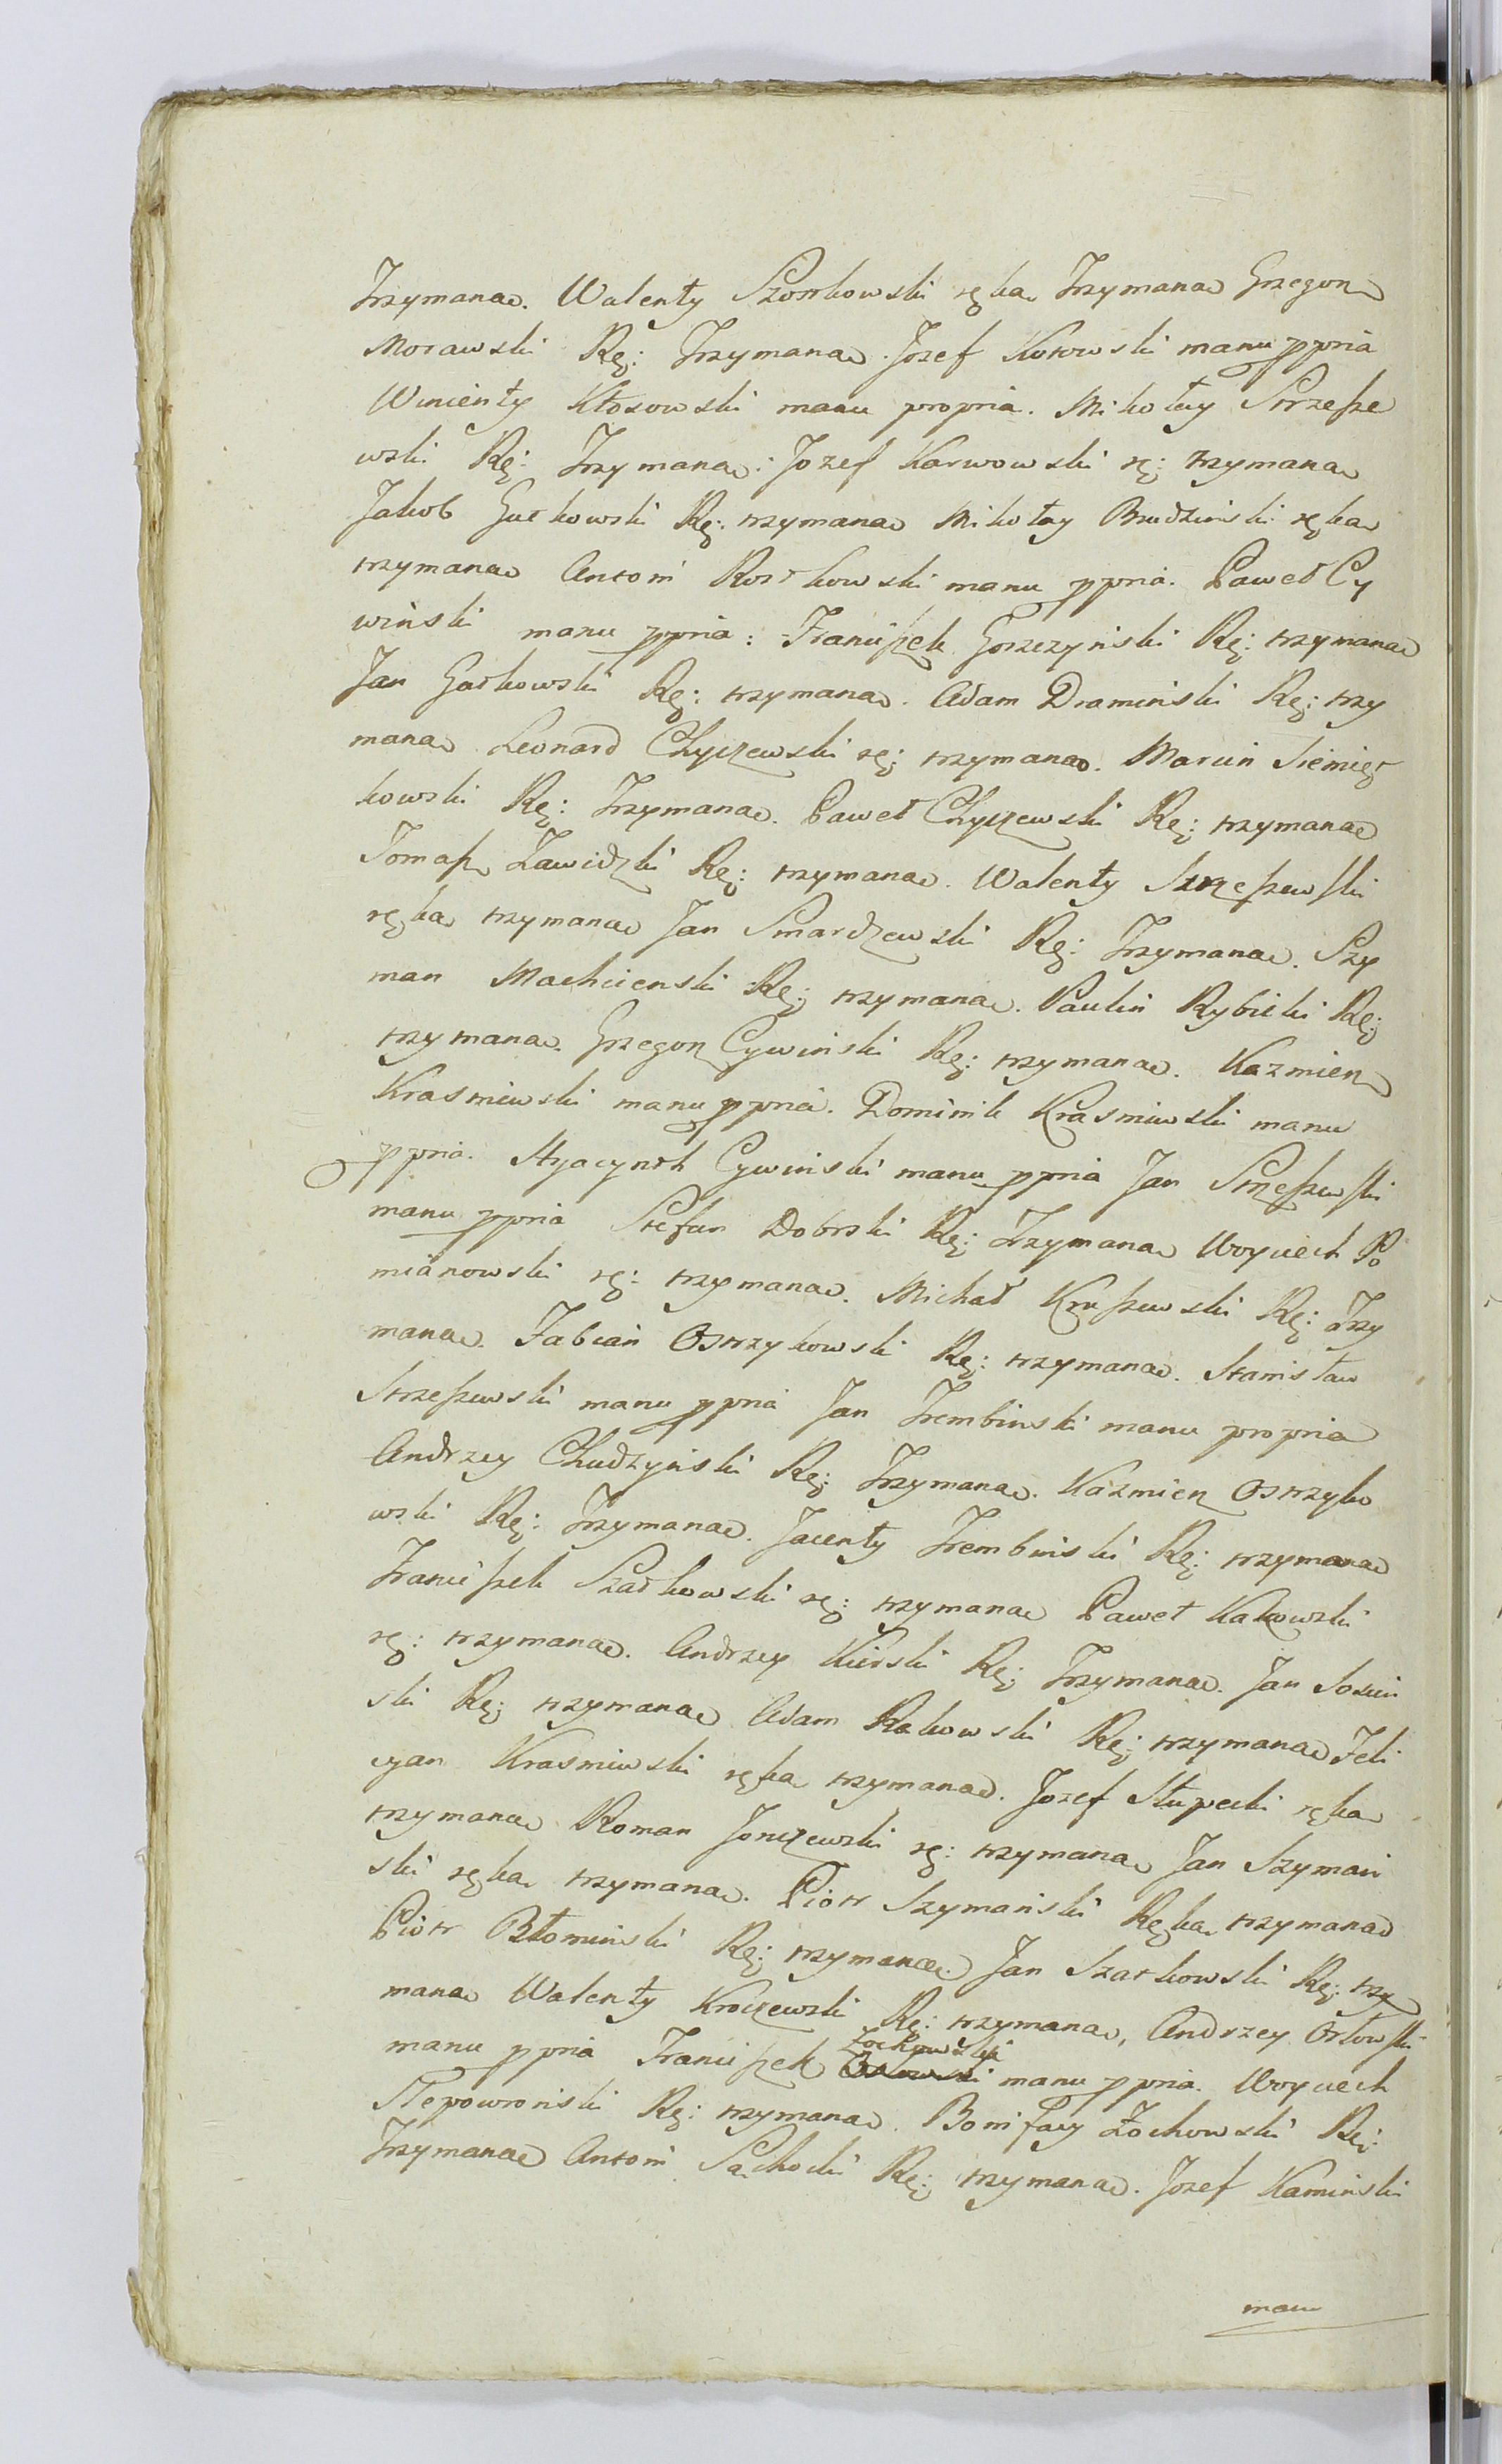 Trzymana. Walenty Szorkowski ręka Trzymana Grzegorz
Morawski Rę: Trzymana. Jozef Kosowski manu ppria
Wincenty Kłosowski manu propria. Mikołay Strzesze
wski Rę: Trzymana: Jozef Karwowski rę: trzymana
Jakob Gutkowski Rę: trzymana Mikołay Brudziński ręka
trzymana Antoni Rostkowski manu ppria. Paweł Cy
wiński manu ppria: Franciszek Gorzczyński Rę: trzymana
Jan Gadkowski Rę: trzymana. Adam Dramiński Rę: trzy
mana Leonard Chyczewski rę: trzymana. Marcin Siemięt
kowski Rę: Trzymana. Paweł Chyczewski Rę: trzymana
Tomasz Zawidzki Rę: trzymana. Walenty Strzeszewski
ręka trzymana Jan Smardzewski Rę: Trzymana. Szy
man Machcienski Rę: trzymana. Paulin Rybicki Rę:
trzymana. Grzegorz Cywiński Rę: trzymana. Kazmierz
Krasniewski manu ppria. Dominik Krasniewski manu
ppria. Hyacynth Cywiński manu ppria Jan Strzeszewski
manu ppria Stefan Dobrski Rę: Trzymana Woyciech Po
mianowski rę: trzymana. Michał Kraszewski Rę: Trzy
mana. Fabian Ostrzykowski Rę: trzymana. Stanisław
Strzeszewski manu ppria Jan Trembinski manu propria
Andrzey Chudzyński Rę: Trzymana. Kazmierz Ostrzyko
wski Rę: Trzymana. Jacenty Trembinski Rę: trzymana
Franciszek Szadkowski rę: trzymana Paweł Kakowski
rę: trzymana. Andrzey Kierski Rę: Trzymana. Jan Sosin
ski Rę: trzymana Adam Rakowski Rę: trzymana Feli
cyan Krasniewski ręka trzymana. Jozef Słupecki ręka
trzymana Roman Jonczewski rę: trzymana Jan Szymań
ski ręka trzymana. Piotr Szymański Ręka trzymana
Piotr Błomiński Rę: trzymana. Jan Szarkowski Rę: trzy
mana Walenty Kroczewski Rę: trzymana, Andrzey Orłowski
manu ppria Franciszek Żochowski manu ppria. Woyciech
Slepowroński Rę: trzymana. Bonifacy Żochowski Rę:
Trzymana Antoni Sachocki Rę: trzymana. Jozef Kamiński
manu